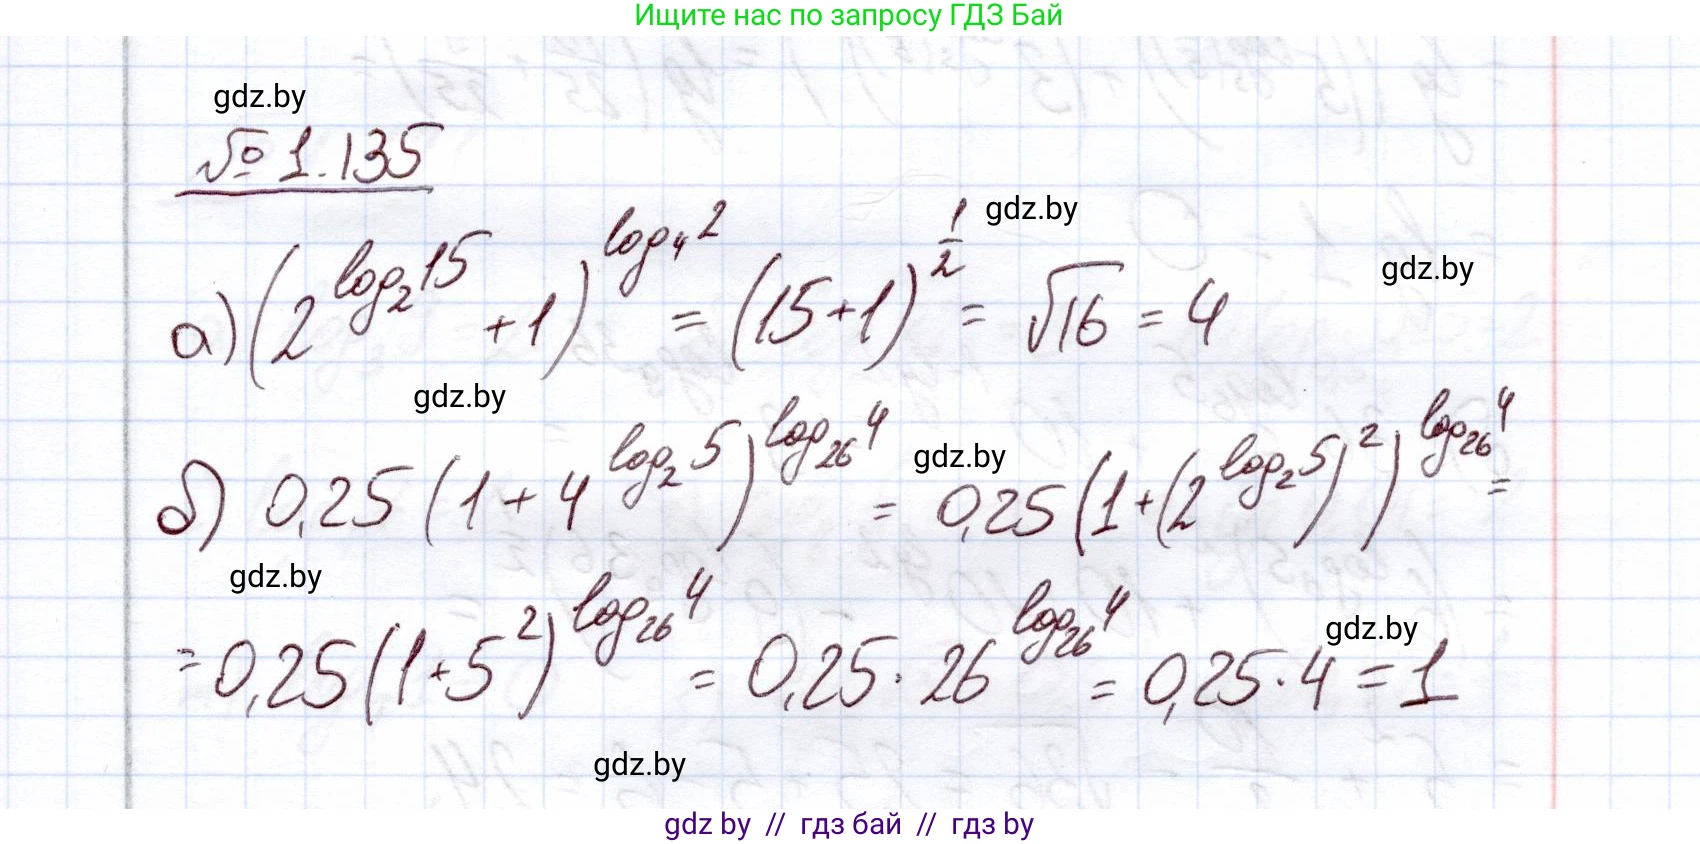 Ищите нас по запросу ГДЗ Бай
gdz.by
№ 1.135
gdz.by
gdz.by
а) (2^{log_2 15} + 1)^{log_4 2} = (15+1)^{1/2} = √16 = 4
gdz.by
gdz.by
б) 0,25 (1 + 4^{log_2 5})^{log_{26} 4} = 0,25 (1 + (2^{log_2 5})^2)^{log_{26} 4} =
gdz.by
gdz.by
= 0,25 (1+5^2)^{log_{26} 4} = 0,25 · 26^{log_{26} 4} = 0,25 · 4 = 1
gdz.by
gdz by // гдз бай // гдз by